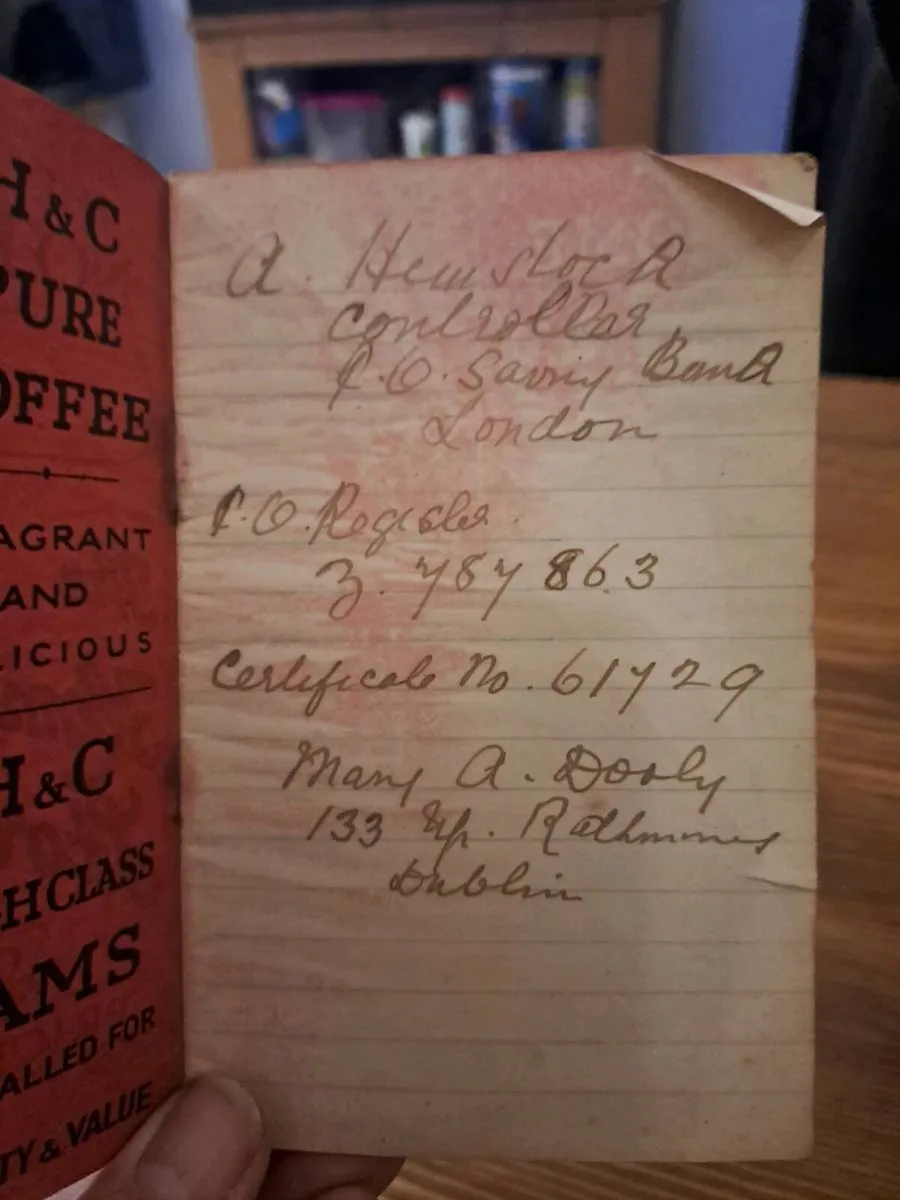 H & C
PURE
COFFEE
FRAGRANT
AND
DELICIOUS
H & C
HIGH CLASS
JAMS
UNEQUALLED FOR
QUALITY & VALUE
A. Hemstock
Controller,
P.O. Saving Bank
London
P.O. Register
Z. 787 863
Certificate No. 61729
Mary A. Dooly
133 Up. Rathmines
Dublin